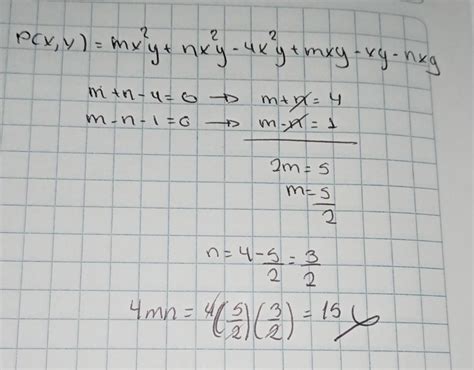 P(x,y) = mx²y + nx²y - 4x²y + mxy - xy - nxy
m+n-4=0 → m+n=4
m-n-1=0 → m-n=1
2m=5
m=5/2
n=4-5/2=3/2
4mn=4(5/2)(3/2)=15